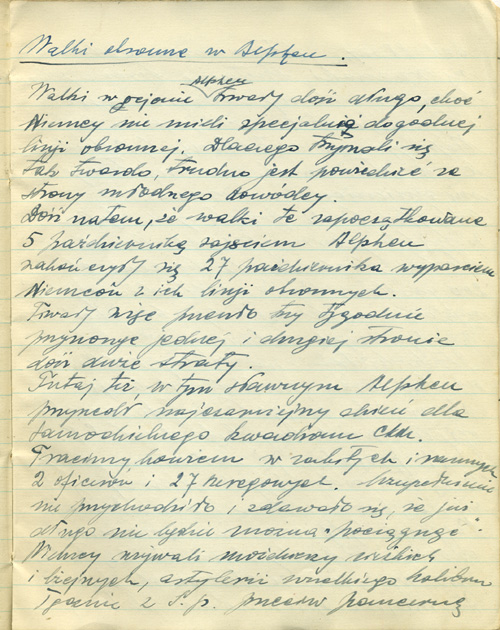 Walki obronne w Alphen.
Alphen
Walki w rejonie trwały dość długo, choć
Niemcy nie mieli specjalnie dogodnej
linji obronnej. Dlaczego trzymali się
tak twardo, trudno jest powiedzieć ze
strony młodszego dowódcy.
Dość na tem, że walki te zapoczątkowane
5 października zajęciem Alphen
zakończyły się 27 października wyparciem
Niemców z ich linji obronnych.
Trwały więc prawie trzy tygodnie
przynosząc jednej i drugiej stronie
dość duże straty.
Tutaj też w tym sławnym Alphen
przyszedł najczarniejszy dzień dla
samodzielnego szwadronu Ckm.
Tracimy bowiem w zabitych i rannych
2 oficerów i 27 szeregowych. Uzupełnienie
nie przychodziło i zdawało się, że już
długo nie będzie można "pociągnąć".
Niemcy używali moździerzy ciężkich
i lżejnych, artylerii wszelkiego kalibru
łącznie z d. p. pancerną